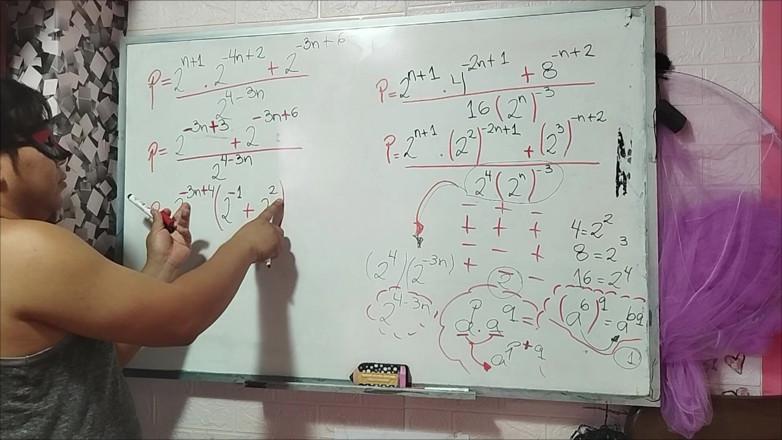 P = 2^{n+1} · 2^{-4n+2} + 2^{-3n+6}
2^{4-3n}
P = 2^{-3n+3} + 2^{-3n+6}
2^{4-3n}
2^{-3n+4} (2^{-1} + 2^{2})
P = 2^{n+1} · 4^{-2n+1} + 8^{-n+2}
16 (2^{n})^{-3}
P = 2^{n+1} · (2^{2})^{-2n+1} + (2^{3})^{-n+2}
2^{4} (2^{n})^{-3}
- + -
+ - -
- - +
+ + +
(2^{4}) (2^{-3n})
2^{4-3n}
2
a^{p} · a^{q} =
a^{p+q}
4 = 2^{2}
8 = 2^{3}
16 = 2^{4}
(a^{b})^{q} = a^{bq}
1